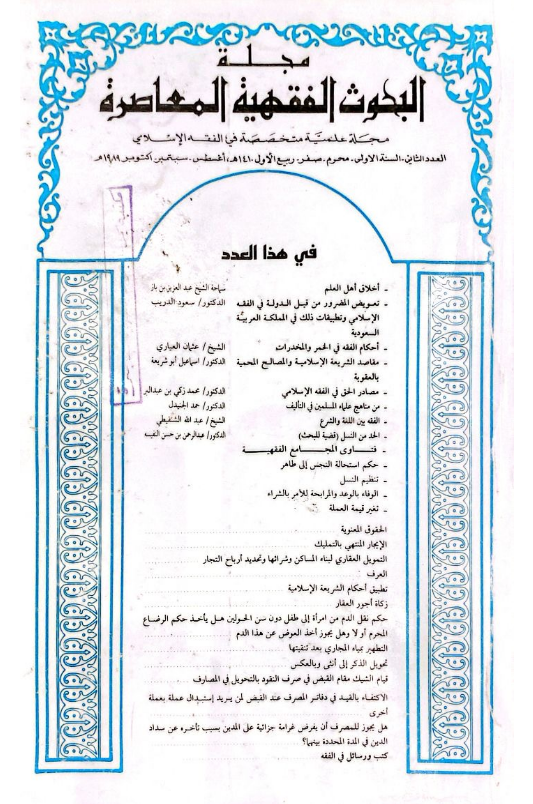 مجلة
البحوث الفقهية المعاصرة
مجلة علمية متخصصة في الفقه الإسلامي
العدد الثاني - السنة الأولى - محرم - صفر - ربيع الأول - ١٤١٠هـ / أغسطس - سبتمبر أكتوبر ١٩٨٩م
في هذا العدد
- أخلاق أهل العلم سماحة الشيخ عبد العزيز بن باز
- تعويض المضرور من قبل الدولة في الفقه الدكتور / سعود الدريب
الإسلامي وتطبيقات ذلك في المملكة العربية
السعودية
- أحكام الفقه في الخمر والمخدرات الشيخ / عثمان العياري
- مقاصد الشريعة الإسلامية والمصالح المحمية الدكتور / اسماعيل أبو شريعة
بالعقوبة
- مصادر الحق في الفقه الإسلامي الدكتور / محمد زكي بن عبدالبر
- من مناهج علماء المسلمين في التأليف الدكتور / حمد الجنيدل
- الفقه بين اللغة والشرع الشيخ / عبد الله الشنقيطي
- الحد من النسل (قضية للبحث) الدكتور / عبدالرحمن بن حسن النفيسه
- فتاوى المجامع الفقهية
- حكم استحالة النجس إلى طاهر
- تنظيم النسل
- الوفاء بالوعد والمرابحة للآمر بالشراء
- تغير قيمة العملة
الحقوق المعنوية
الإيجار المنتهي بالتمليك
التمويل العقاري لبناء المساكن وشرائها وتحديد أرباح التجار
العرف
تطبيق أحكام الشريعة الإسلامية
زكاة أجور العقار
حكم نقل الدم من امرأة إلى طفل دون سن الحولين هل يأخذ حكم الرضاع
المحرم أو لا وهل يجوز أخذ العوض عن هذا الدم
التطهير بمياه المجاري بعد تنقيتها
تحويل الذكر إلى أنثى وبالعكس
قيام الشيك مقام القبض في صرف النقود بالتحويل في المصارف
الاكتفاء بالقيد في دفاتر المصرف عند القبض لمن يريد إستبدال عملة بعملة
أخرى
هل يجوز للمصرف أن يفرض غرامة جزائية على المدين بسبب تأخره عن سداد
الدين في المدة المحددة بينهما؟
كتب ورسائل في الفقه